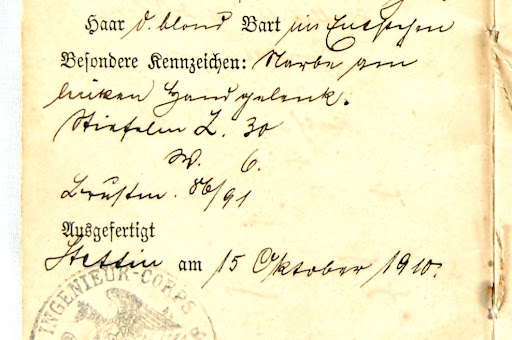 Haar d. blond Bart im Entstehen
Besondere Kennzeichen: Narbe am
linken Handgelenk.
Stiefelm L. 30
W. 6.
Brustm. 86/91
Ausgefertigt
Stettin am 15 Oktober 1910.
INGENIEUR-CORPS &